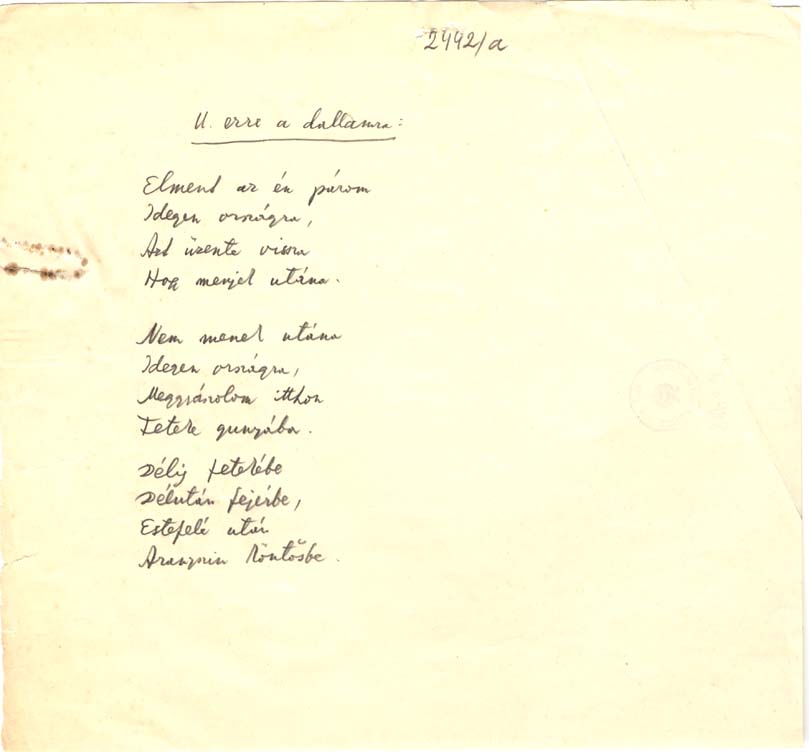 2442/a
U. erre a dallamra:
Elment az én párom
Idegen országra,
Azt üzente vissza
Hog menjek utána.
Nem menek utána
Idegen országra,
Meggyászolom itthon
Fekete gunyába.
Délig feketébe
Délután fejérbe,
Estefelé után
Aranyszin köntösbe.